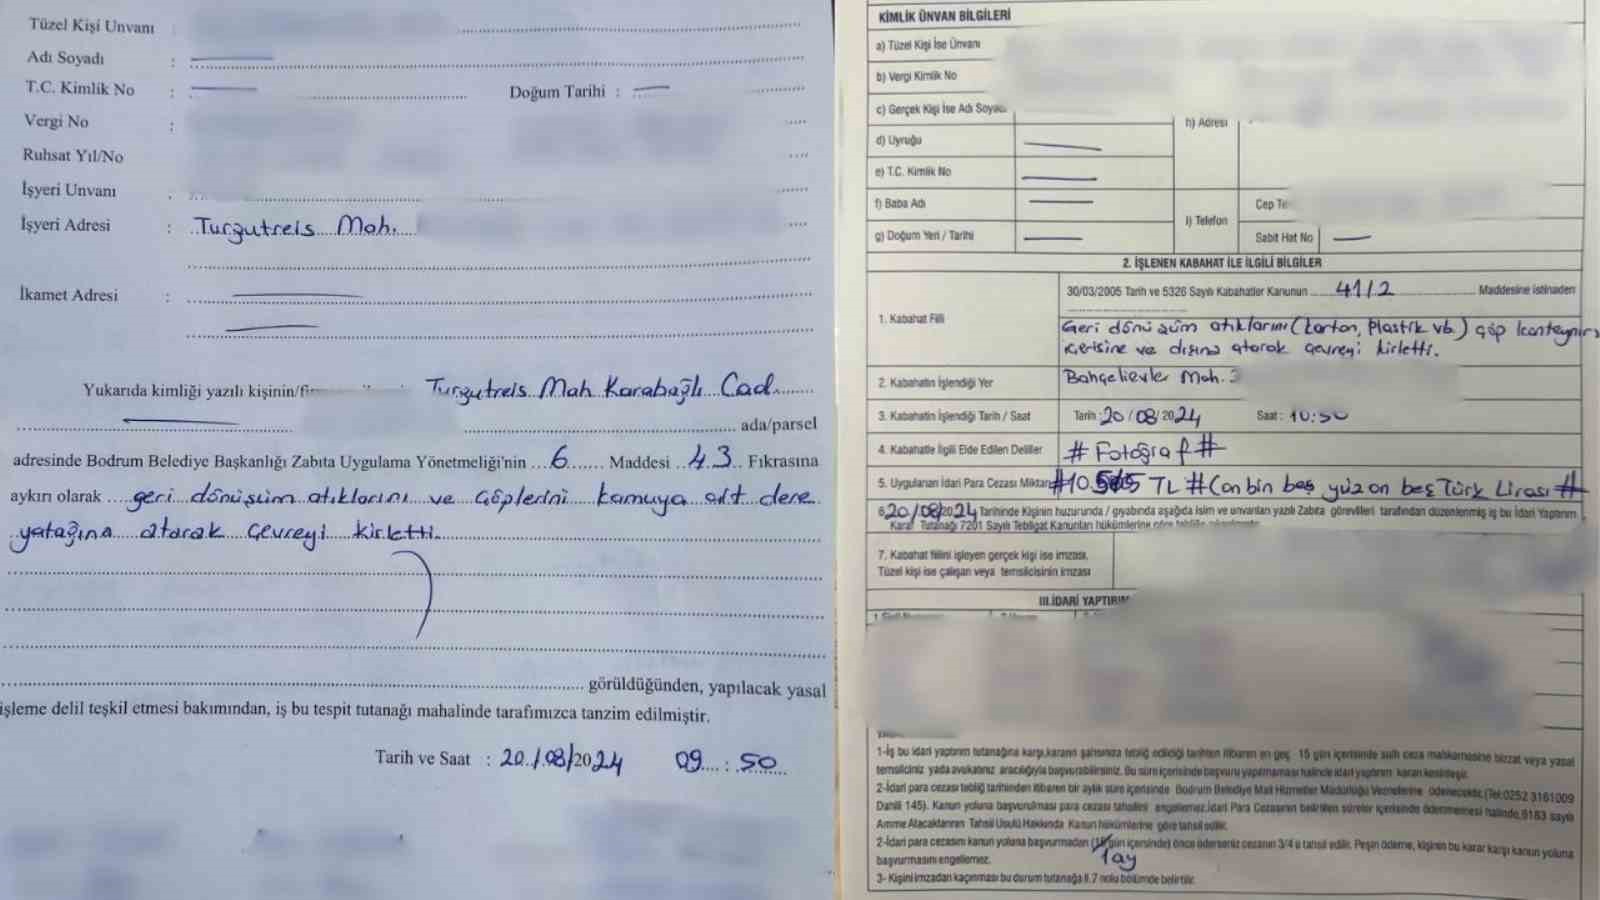 Tüzel Kişi Unvanı
Adı Soyadı :
T.C. Kimlik No : Doğum Tarihi :
Vergi No :
Ruhsat Yıl/No
İşyeri Unvanı
İşyeri Adresi : Turgutreis Mah.
İkamet Adresi :
Yukarıda kimliği yazılı kişinin/ Turgutreis Mah Karabağlı Cad.
ada/parsel
adresinde Bodrum Belediye Başkanlığı Zabıta Uygulama Yönetmeliği'nin 6 Maddesi 43 Fıkrasına
aykırı olarak geri dönüşüm atıklarını ve çöplerini kamuya ait dere
yatağına atarak çevreyi kirletti.
görüldüğünden, yapılacak yasal
işleme delil teşkil etmesi bakımından, iş bu tespit tutanağı mahalinde tarafımızca tanzim edilmiştir.
Tarih ve Saat : 20/08/2024 09:50
KİMLİK ÜNVAN BİLGİLERİ
a) Tüzel Kişi İse Ünvanı
b) Vergi Kimlik No
c) Gerçek Kişi İse Adı Soyadı
h) Adresi
d) Uyruğu
e) T.C. Kimlik No
f) Baba Adı
ı) Telefon
Cep Te
g) Doğum Yeri / Tarihi
Sabit Hat No
2. İŞLENEN KABAHAT İLE İLGİLİ BİLGİLER
1. Kabahat Fiili
30/03/2005 Tarih ve 5326 Sayılı Kabahatler Kanunun 41/2 Maddesine istinaden
Geri dönüşüm atıklarını (karton, plastik vb.) çöp konteynırı
içerisine ve dışına atarak çevreyi kirletti.
2. Kabahatin İşlendiği Yer Bahçelievler Mah.
3. Kabahatin İşlendiği Tarih / Saat Tarih: 20/08/2024 Saat: 10:50
4. Kabahatle İlgili Elde Edilen Deliller # Fotoğraf #
5. Uygulanan İdari Para Cezası Miktarı #10.515 TL # (on bin beş yüz on beş Türk Lirası #
6. 20/08/2024 Tarihinde Kişinin huzurunda / gıyabında aşağıda isim ve unvanları yazılı Zabıta görevlileri tarafından düzenlenmiş iş bu İdari Yaptırım
Karar Tutanağı 7201 Sayılı Tebligat Kanunları hükümlerine göre
7. Kabahat fiilini işleyen gerçek kişi ise imzası,
Tüzel kişi ise çalışan veya temsilcisinin imzası
III.İDARİ YAPTIRIM
1-İş bu idari yaptırım tutanağına karşı,kararın şahsınıza tebliğ edildiği tarihten itibaren en geç 15 gün içerisinde sulh ceza mahkemesine bizzat veya yasal
temsilciniz yada avukatınız aracılığıyla başvurabilirsiniz. Bu süre içerisinde başvuru yapılmaması halinde idari yaptırım kararı kesinleşir.
2-İdari para cezası tebliğ tarihinden itibaren bir aylık süre içerisinde Bodrum Belediye Mali Hizmetler Müdürlüğü Veznelerine ödenecektir.(Tel:0252 3161009
Dahili 145). Kanun yoluna başvurulması para cezası tahsilini engellemez.İdari Para Cezasının belirtilen süreler içerisinde ödenmemesi halinde,6183 sayılı
Amme Alacaklarının Tahsil Usulü Hakkında Kanun hükümlerine göre tahsil edilir.
2-İdari para cezasını kanun yoluna başvurmadan (15 gün içersinde) önce öderseniz cezanın 3/4 ü tahsil edilir. Peşin ödeme, kişinin bu karar karşı kanun yoluna
1 ay
başvurmasını engellemez.
3- Kişini imzadan kaçınması bu durum tutanağa II.7 nolu bölümde belirtilir.